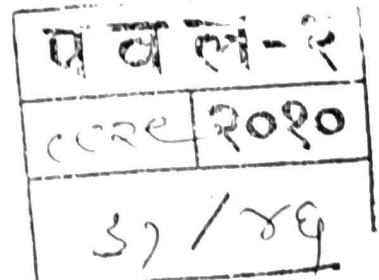 प व ल - २
८८२९ २०१०
३१ / ४६